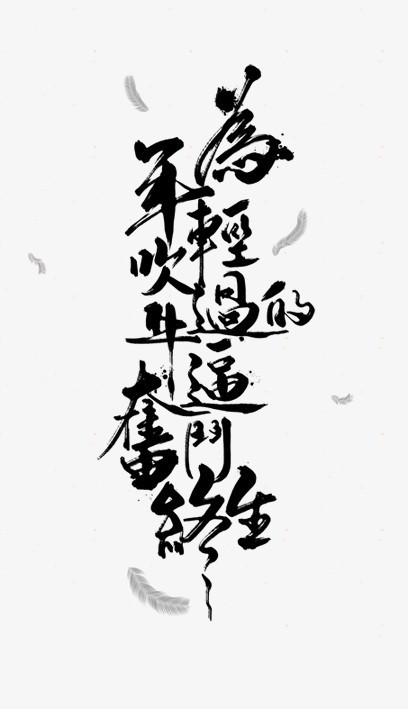 為
年輕
吹過的
牛逼
奮鬥
終生